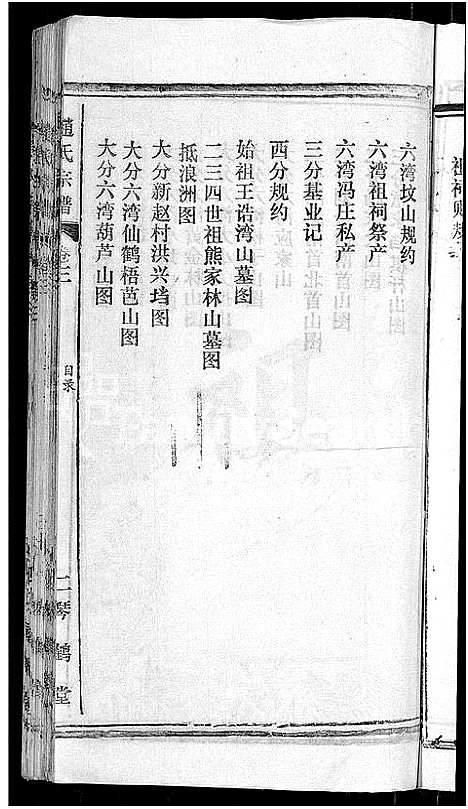 六湾坟山规约
六湾祖祠祭产
六湾冯庄私产
三分基业记
西分规约
始祖王诰湾山墓图
二三四世祖熊家林山墓图
抵浪洲图
大分新赵村洪兴垱图
大分六湾仙鹤梧芭山图
大分六湾葫芦山图
赵氏宗谱
目录
二琴鹤堂